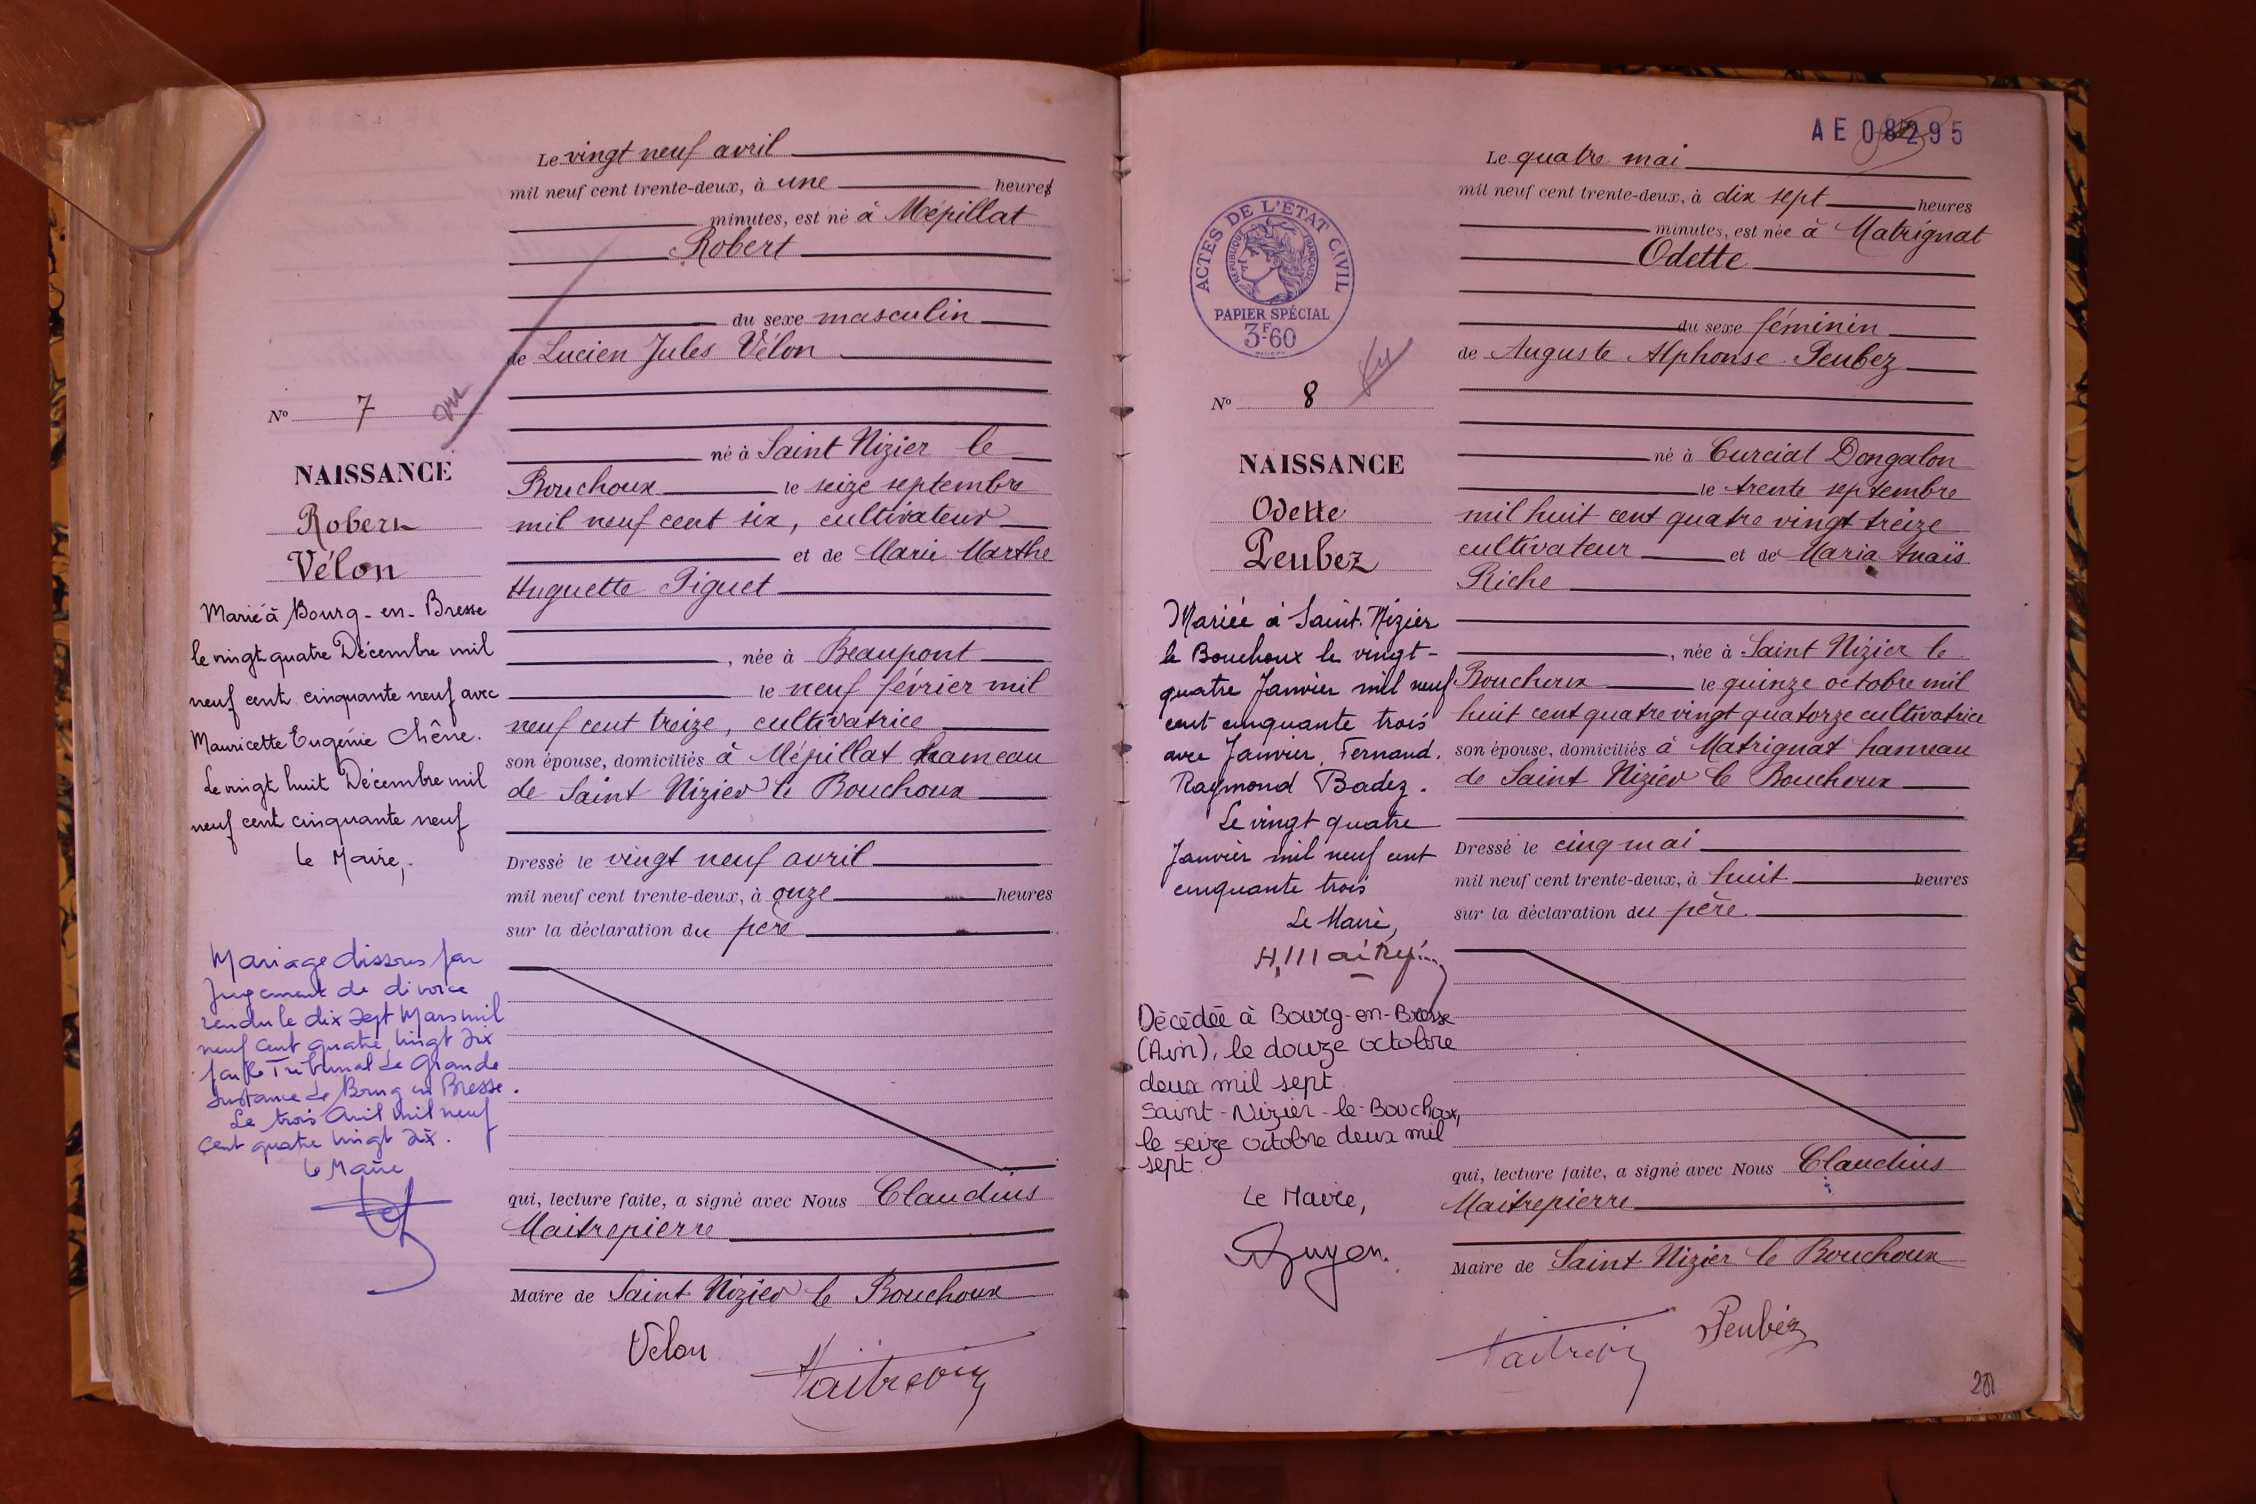 Le vingt neuf avril
mil neuf cent trente-deux, à une heures
minutes, est né à Mépillat
Robert
du sexe masculin
de Lucien Jules Vélon
né à Saint Nizier le
Bouchoux le seize septembre
mil neuf cent six, cultivateur
et de Marie Marthe
Huguette Piguet
, née à Beaupont
le neuf février mil
neuf cent treize, cultivatrice
son épouse, domiciliés à Mépillat hameau
de Saint Nizier le Bouchoux
Dressé le vingt neuf avril
mil neuf cent trente-deux, à onze heures
sur la déclaration du père
qui, lecture faite, a signé avec Nous Claudius
Maitrepierre
Maire de Saint Nizier le Bouchoux
Velon
N° 7
NAISSANCE
Robert
Vélon
Marié à Bourg-en-Bresse
le vingt quatre Décembre mil
neuf cent cinquante neuf avec
Mauricette Eugénie Chêne.
Le vingt huit Décembre mil
neuf cent cinquante neuf
Le Maire,
Mariage dissous par
Jugement de divorce
rendu le dix sept Mars mil
neuf cent quatre vingt dix
par le Tribunal de Grande
Instance de Bourg en Bresse.
Le trois Avril mil neuf
cent quatre vingt dix.
Le Maire
AE 08295
Le quatre mai
mil neuf cent trente-deux, à dix sept heures
minutes, est née à Matrignat
Odette
du sexe féminin
de Auguste Alphonse Peubez
né à Curciat Dongalon
le trente septembre
mil huit cent quatre vingt treize
cultivateur et de Maria Anaïs
Riche
, née à Saint Nizier le
Bouchoux le quinze octobre mil
huit cent quatre vingt quatorze cultivatrice
son épouse, domiciliés à Matrignat hameau
de Saint Nizier le Bouchoux
Dressé le cinq mai
mil neuf cent trente-deux, à huit heures
sur la déclaration du père
qui, lecture faite, a signé avec Nous Claudius
Maitrepierre
Maire de Saint Nizier le Bouchoux
Peubez
ACTES DE L'ÉTAT CIVIL
RÉPUBLIQUE FRANÇAISE
PAPIER SPÉCIAL
3F60
N° 8
NAISSANCE
Odette
Peubez
Mariée à Saint-Nizier
le Bouchoux le vingt-
quatre Janvier mil neuf
cent cinquante trois
avec Janvier, Fernand,
Raymond Badez.
Le vingt quatre
Janvier mil neuf cent
cinquante trois
Le Maire,
Décédée à Bourg-en-Bresse
(Ain), le douze octobre
deux mil sept
Saint-Nizier-le-Bouchoux,
le seize octobre deux mil
sept
Le Maire,